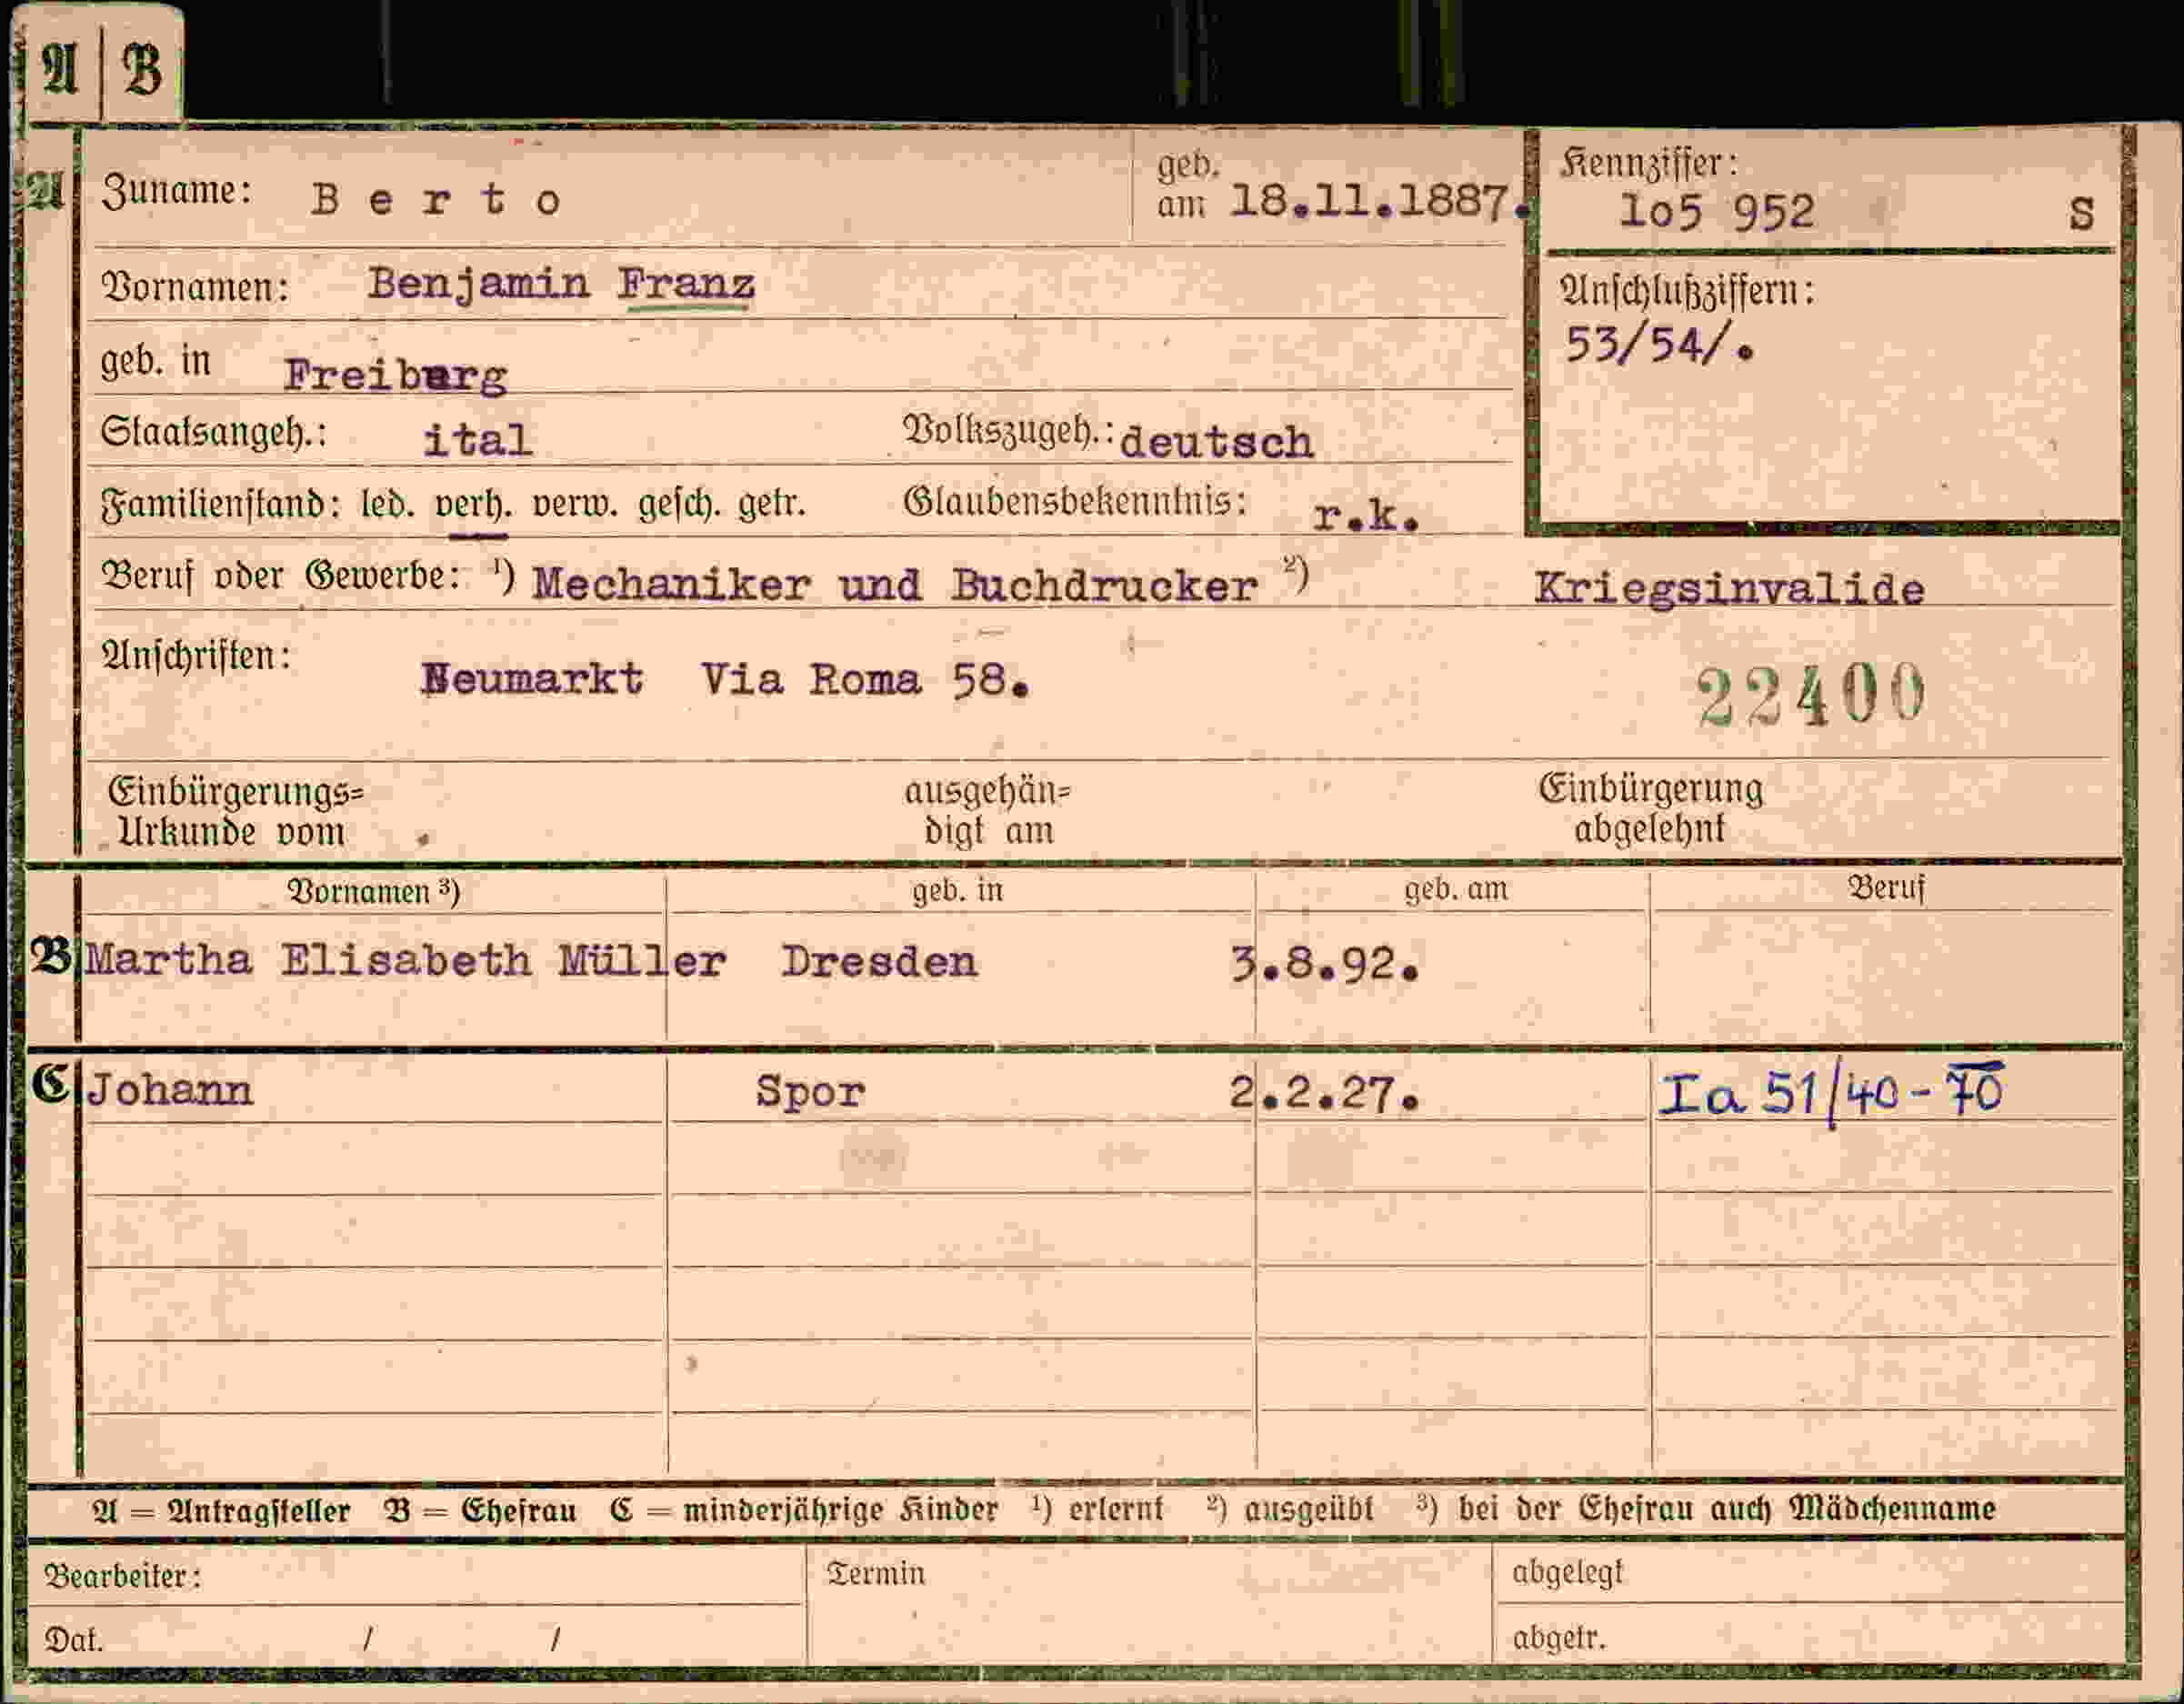 A | B
A Zuname: B e r t o geb. am 18.11.1887. Kennziffer: 1o5 952 S
Vornamen: Benjamin Franz Anschlußziffern: 53/54/.
geb. in Freiburg
Staatsangeh.: ital Volkszugeh.: deutsch
Familienstand: led. verh. verw. gesch. getr. Glaubensbekenntnis: r.k.
Beruf oder Gewerbe: ¹) Mechaniker und Buchdrucker ²) Kriegsinvalide
Anschriften: Neumarkt Via Roma 58. 22400
Einbürgerungs= ausgehän= Einbürgerung
Urkunde vom digt am abgelehnt
Vornamen ³) geb. in geb. am Beruf
B Martha Elisabeth Müller Dresden 3.8.92.
C Johann Spor 2.2.27. Ia 51/40-70
A = Antragsteller B = Ehefrau C = minderjährige Kinder ¹) erlernt ²) ausgeübt ³) bei der Ehefrau auch Mädchenname
Bearbeiter: Termin abgelegt
Dat. / / abgetr.